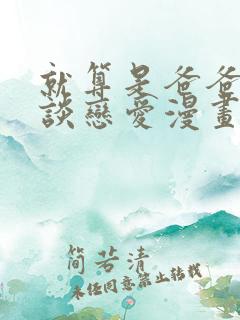 就算是爸爸
談戀愛漫畫
簡若清
未经同意禁止转载